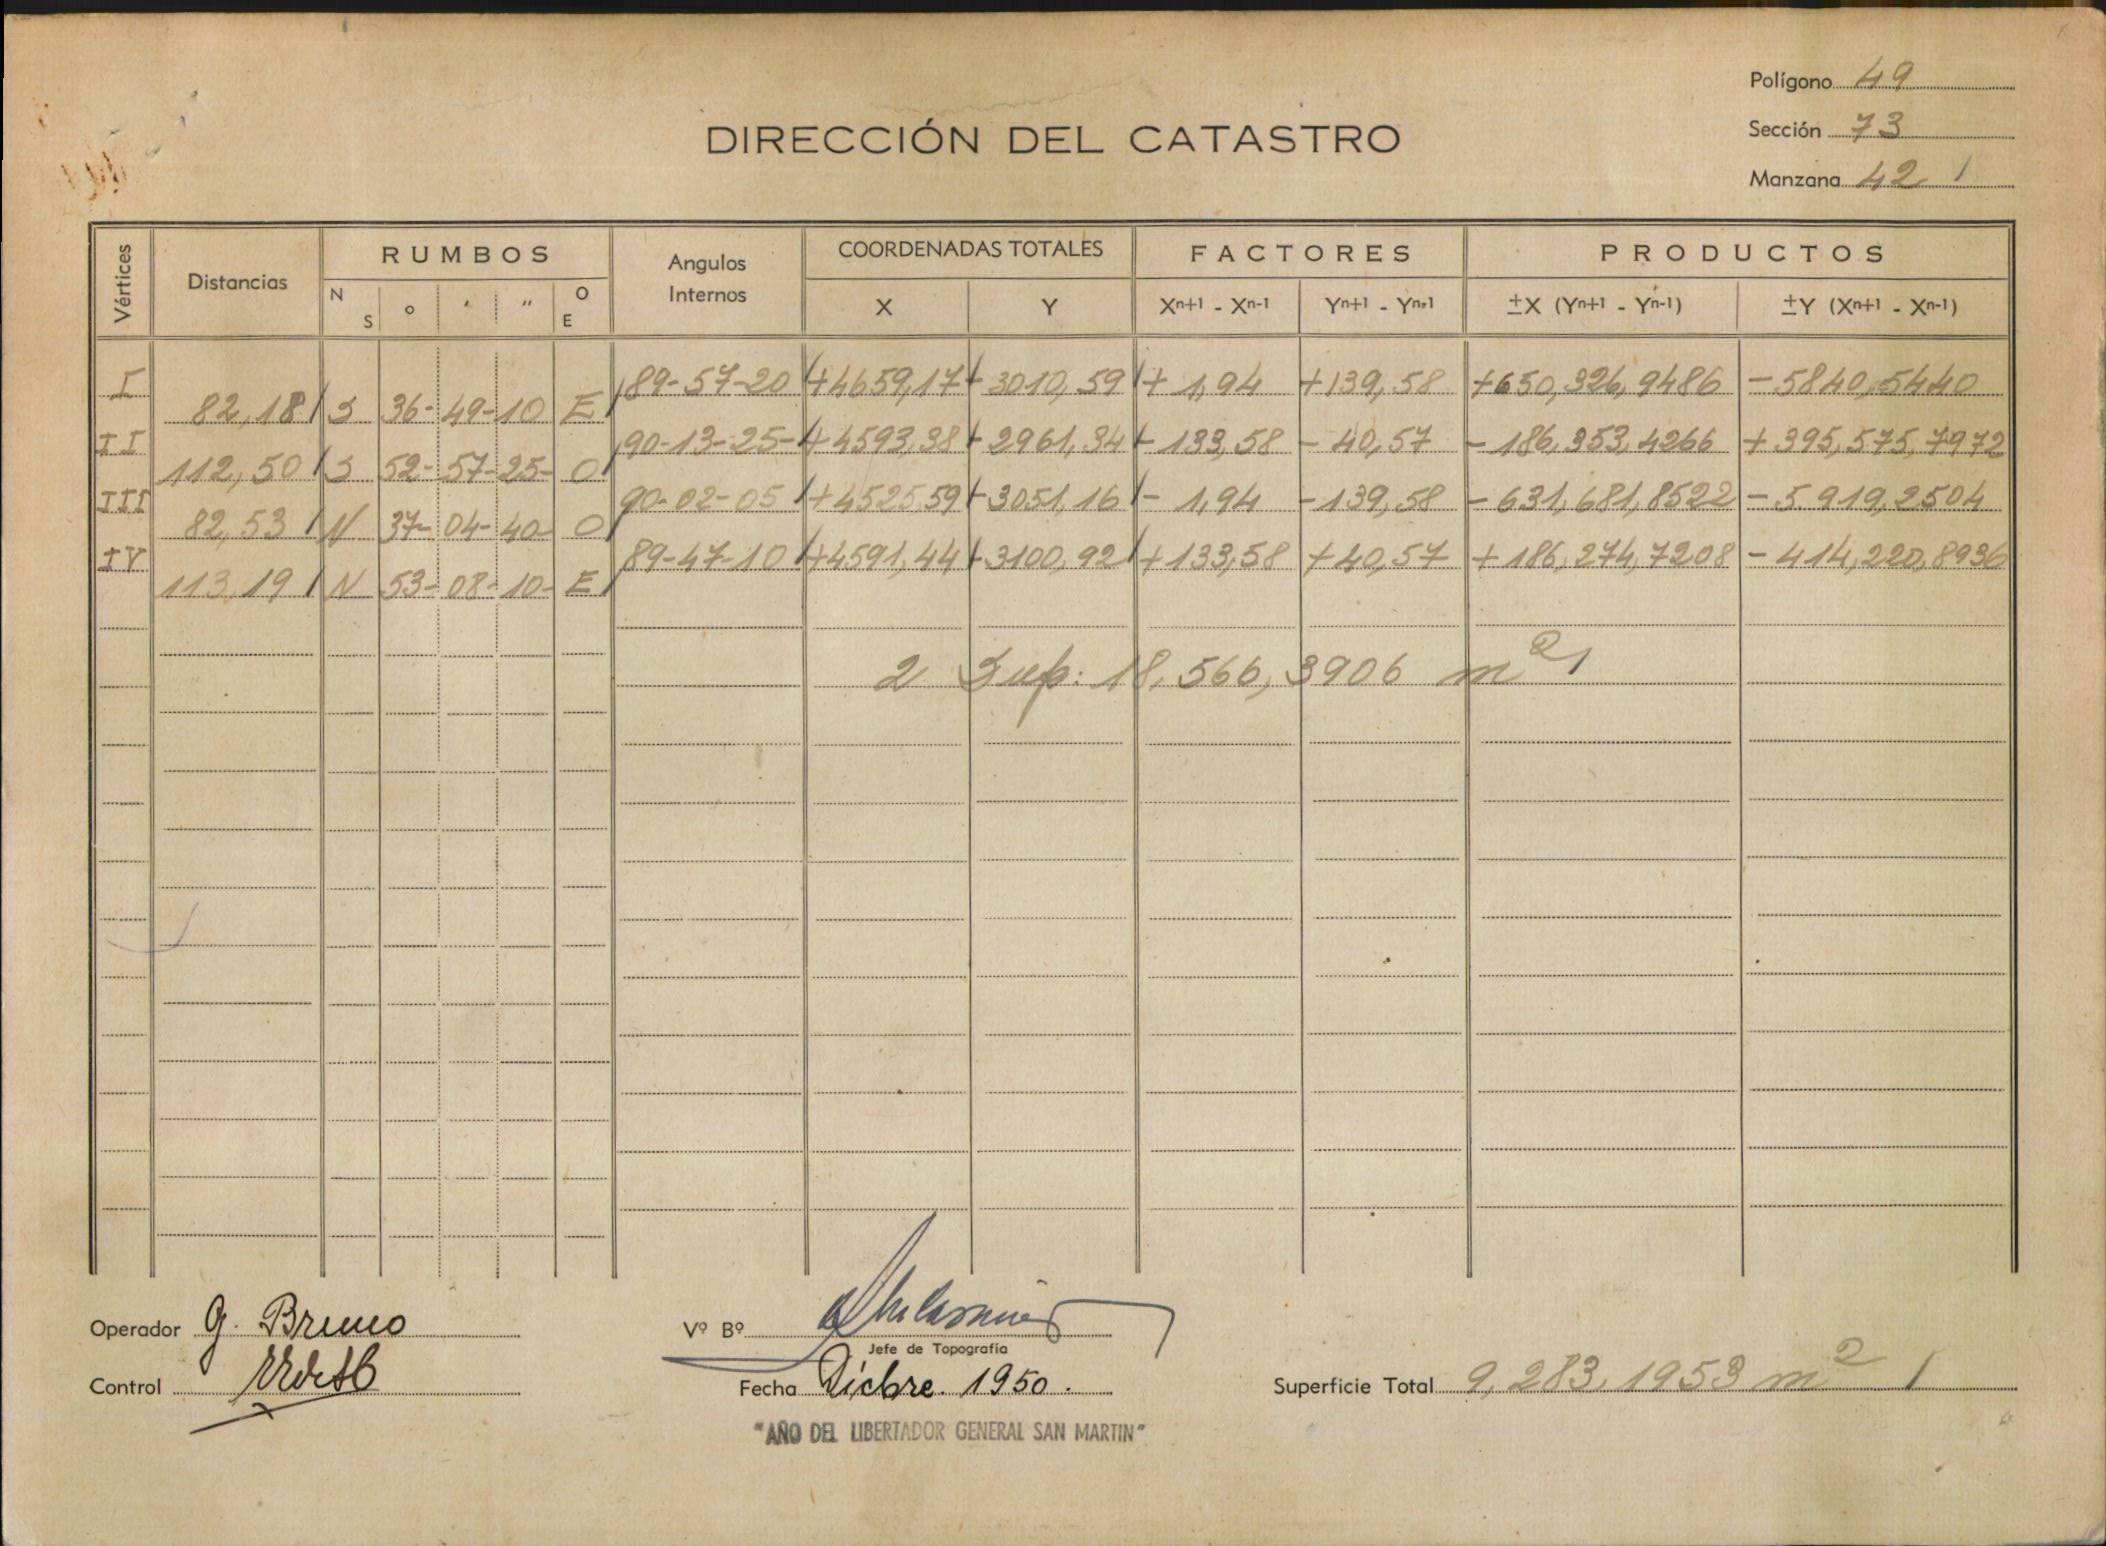 Polígono 49
DIRECCIÓN DEL CATASTRO
Sección 73
Manzana 42
Vértices Distancias RUMBOS Angulos Internos COORDENADAS TOTALES FACTORES PRODUCTOS
N S ° ʹ ʺ O E X Y Xn+1 - Xn-1 Yn+1 - Yn-1 ±X (Yn+1 - Yn-1) ±Y (Xn+1 - Xn-1)
I 89-57-20 +4659,17 + 3010,59 + 1,94 +139,58 +650,326,9486 -5840,5440
82,18 S 36- 49- 10 E
II 90-13-25- + 4593,38 + 2961,34 - 133,58 - 40,57 - 186,353,4266 + 395,575,7972
112,50 S 52- 57- 25- O
III 90-02-05 +4525,59 + 3051,16 - 1,94 -139,58 - 631,681,8522 - 5.919,2504
82,53 N 37- 04- 40- O
IV 89-47-10 +4591,44 + 3100,92 + 133,58 + 40,57 + 186,274,7208 - 414,220,8936
113,19 N 53- 08- 10- E
2 Sup: 18,566,3906 m2
Operador G. Bruno
Vº Bº
Jefe de Topografía
Control
Fecha Dicbre. 1950.
Superficie Total 9,283,1953 m2
"AÑO DEL LIBERTADOR GENERAL SAN MARTIN"